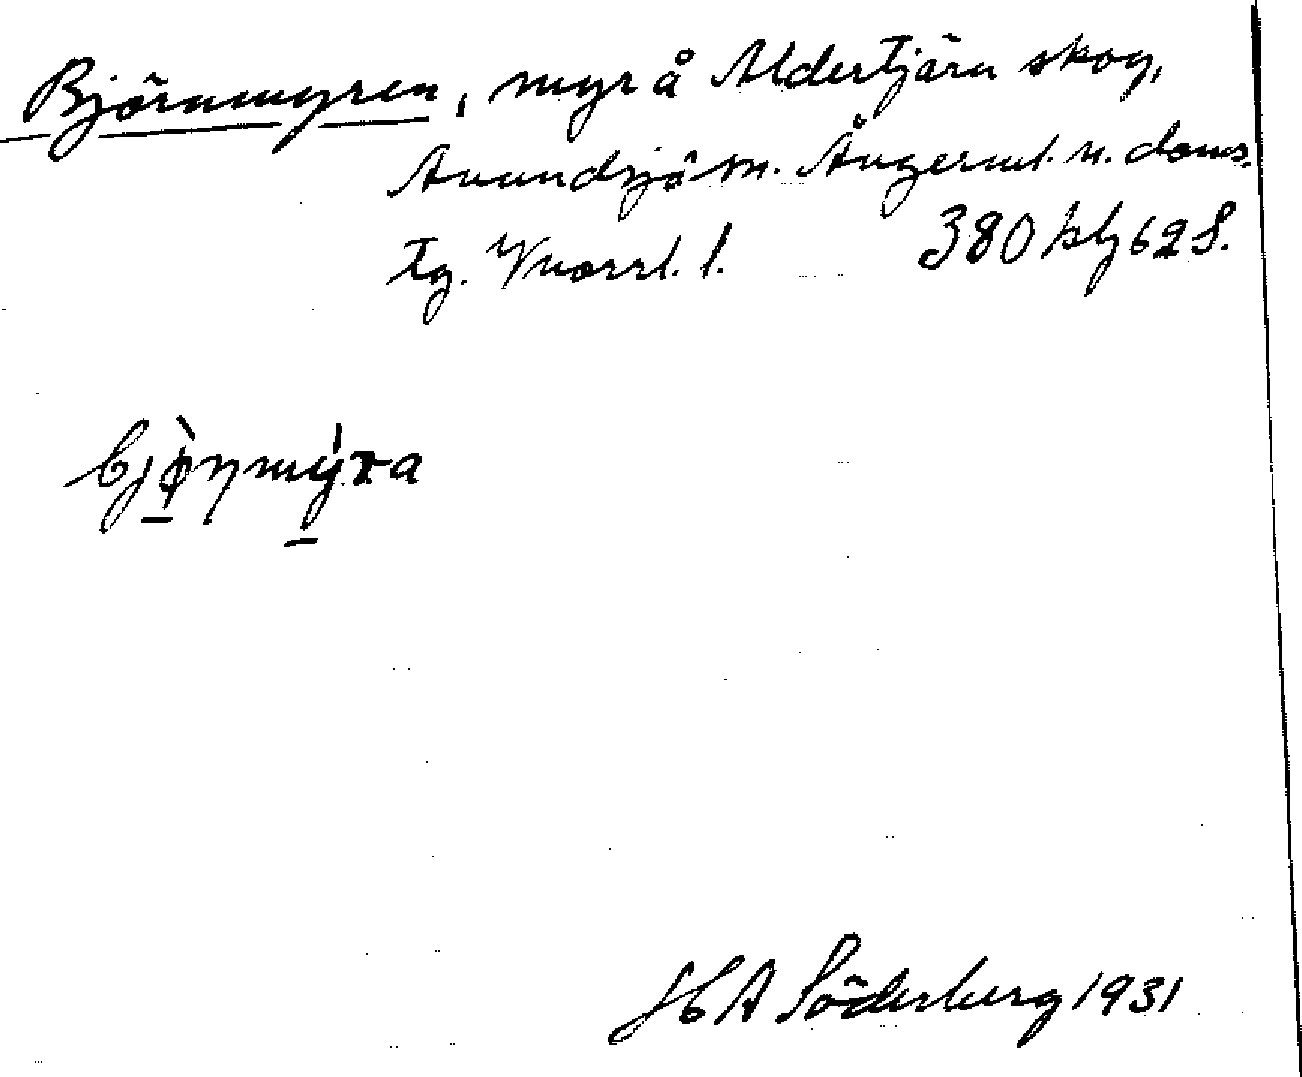 Björnmyren, myr å Aldertjärn skog,
Anundsjö sn. Ångerml. n. doms.
tg. Vnorrl. l. 380 bbg 62 S.
bjɸ̀ŋmy̆ra
H A Söderberg 1931